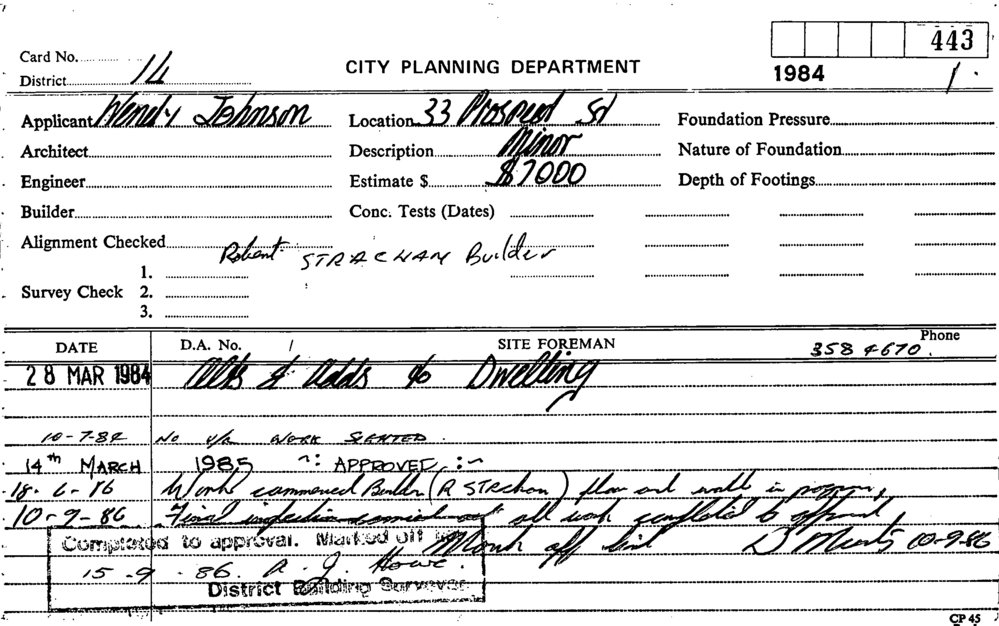 443
Card No.
CITY PLANNING DEPARTMENT
1984 1.
District 14
Applicant Wendy Johnson Location 33 Prospect St Foundation Pressure
Architect Description Minor Nature of Foundation
Engineer Estimate $ $7000 Depth of Footings
Builder Conc. Tests (Dates)
Alignment Checked Robert STRACHAN Builder
1.
Survey Check 2.
3.
DATE D.A. No. / SITE FOREMAN Phone 358 4670.
28 MAR 1984 Alts & Adds to Dwelling
10-7-84 No WORK STARTED.
14th MARCH 1985 ~: APPROVED, :~
18-6-86 Work commenced Builder (R STRachan) floor and walls in progress,
10-9-86 Final inspection carried out all work completed to approval,
Completed to approval. Marked off
off list 10-9-86
15-9-86. R. J. Howe.
District Building Surveyor
CP 45